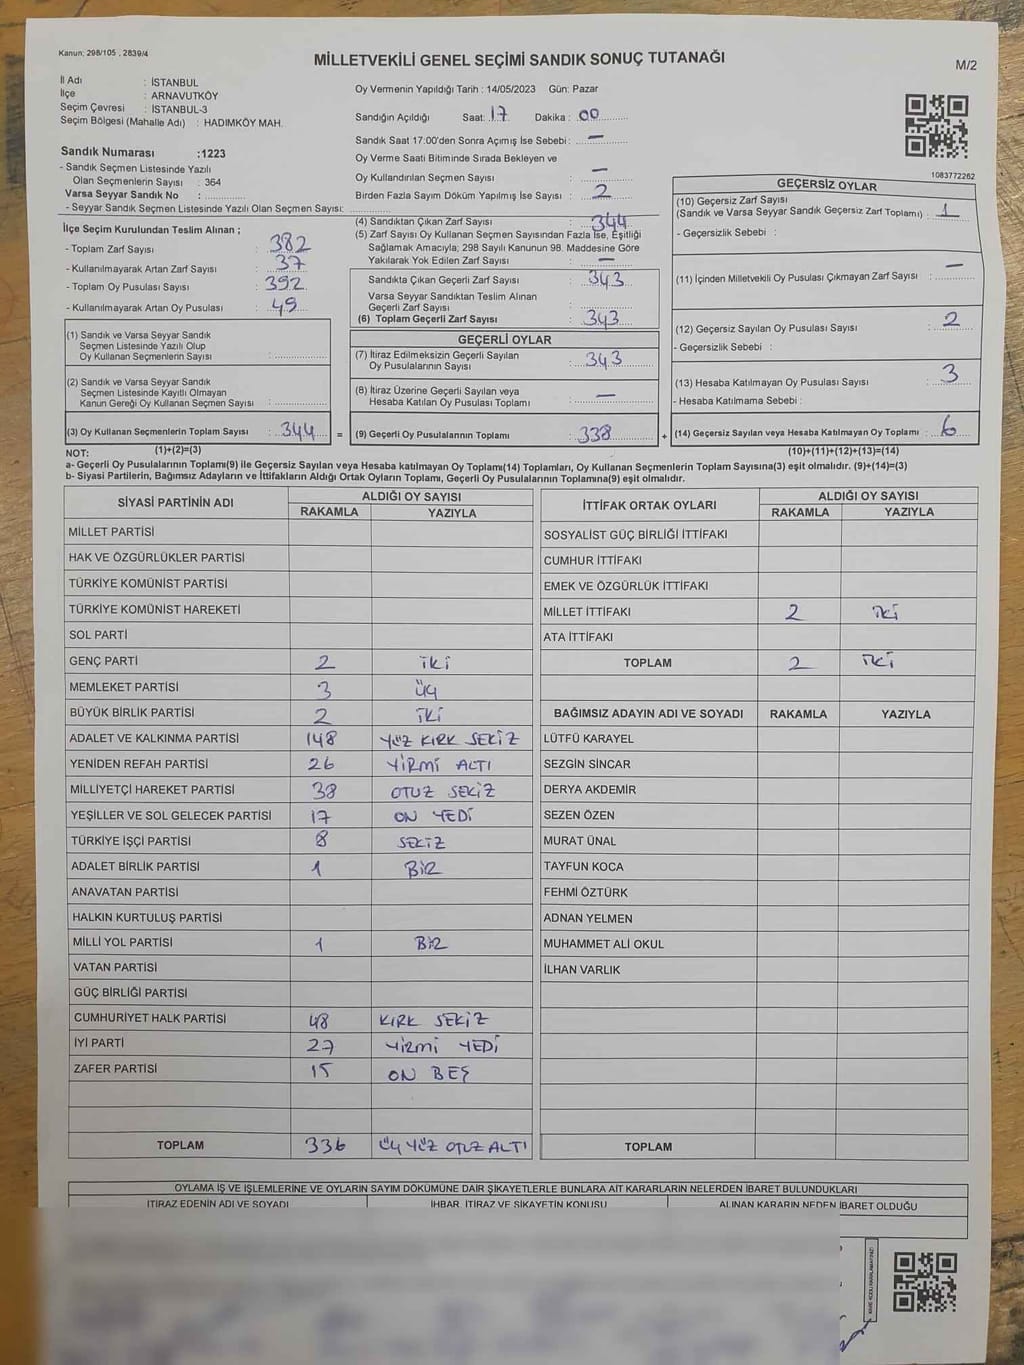 Kanun: 298/105 , 2839/4
MİLLETVEKİLİ GENEL SEÇİMİ SANDIK SONUÇ TUTANAĞI
M/2
İl Adı : İSTANBUL
İlçe : ARNAVUTKÖY
Seçim Çevresi : İSTANBUL-3
Seçim Bölgesi (Mahalle Adı) : HADIMKÖY MAH.
Sandık Numarası :1223
- Sandık Seçmen Listesinde Yazılı
Olan Seçmenlerin Sayısı : 364
Varsa Seyyar Sandık No :
- Seyyar Sandık Seçmen Listesinde Yazılı Olan Seçmen Sayısı:
Oy Vermenin Yapıldığı Tarih : 14/05/2023 Gün: Pazar
Sandığın Açıldığı Saat: 17 Dakika : 00
Sandık Saat 17:00'den Sonra Açımış İse Sebebi : —
Oy Verme Saati Bitiminde Sırada Bekleyen ve
Oy Kullandırılan Seçmen Sayısı : —
Birden Fazla Sayım Döküm Yapılmış İse Sayısı : 2
1083772262
İlçe Seçim Kurulundan Teslim Alınan ;
- Toplam Zarf Sayısı : 382
- Kullanılmayarak Artan Zarf Sayısı : 37
- Toplam Oy Pusulası Sayısı : 392
- Kullanılmayarak Artan Oy Pusulası : 49
(1) Sandık ve Varsa Seyyar Sandık
Seçmen Listesinde Yazılı Olup
Oy Kullanan Seçmenlerin Sayısı :
(2) Sandık ve Varsa Seyyar Sandık
Seçmen Listesinde Kayıtlı Olmayan
Kanun Gereği Oy Kullanan Seçmen Sayısı :
(3) Oy Kullanan Seçmenlerin Toplam Sayısı : 344
(1)+(2)=(3)
(4) Sandıktan Çıkan Zarf Sayısı : 344
(5) Zarf Sayısı Oy Kullanan Seçmen Sayısından Fazla İse, Eşitliği
Sağlamak Amacıyla; 298 Sayılı Kanunun 98. Maddesine Göre
Yakılarak Yok Edilen Zarf Sayısı : —
Sandıkta Çıkan Geçerli Zarf Sayısı : 343
Varsa Seyyar Sandıktan Teslim Alınan
Geçerli Zarf Sayısı :
(6) Toplam Geçerli Zarf Sayısı : 343
GEÇERLİ OYLAR
(7) İtiraz Edilmeksizin Geçerli Sayılan
Oy Pusulalarının Sayısı : 343
(8) İtiraz Üzerine Geçerli Sayılan veya
Hesaba Katılan Oy Pusulası Toplamı : —
= (9) Geçerli Oy Pusulalarının Toplamı : 338
GEÇERSİZ OYLAR
(10) Geçersiz Zarf Sayısı
(Sandık ve Varsa Seyyar Sandık Geçersiz Zarf Toplamı) : 1
- Geçersizlik Sebebi :
(11) İçinden Milletvekili Oy Pusulası Çıkmayan Zarf Sayısı : —
(12) Geçersiz Sayılan Oy Pusulası Sayısı : 2
- Geçersizlik Sebebi :
(13) Hesaba Katılmayan Oy Pusulası Sayısı : 3
- Hesaba Katılmama Sebebi :
+ (14) Geçersiz Sayılan veya Hesaba Katılmayan Oy Toplamı : 6
(10)+(11)+(12)+(13)=(14)
NOT:
a- Geçerli Oy Pusulalarının Toplamı(9) ile Geçersiz Sayılan veya Hesaba katılmayan Oy Toplamı(14) Toplamları, Oy Kullanan Seçmenlerin Toplam Sayısına(3) eşit olmalıdır. (9)+(14)=(3)
b- Siyasi Partilerin, Bağımsız Adayların ve İttifakların Aldığı Ortak Oyların Toplamı, Geçerli Oy Pusulalarının Toplamına(9) eşit olmalıdır.
SİYASİ PARTİNİN ADI ALDIĞI OY SAYISI
RAKAMLA YAZIYLA
MİLLET PARTİSİ
HAK VE ÖZGÜRLÜKLER PARTİSİ
TÜRKİYE KOMÜNİST PARTİSİ
TÜRKİYE KOMÜNİST HAREKETİ
SOL PARTİ
GENÇ PARTİ 2 İKİ
MEMLEKET PARTİSİ 3 ÜÇ
BÜYÜK BİRLİK PARTİSİ 2 İKİ
ADALET VE KALKINMA PARTİSİ 148 YÜZ KIRK SEKİZ
YENİDEN REFAH PARTİSİ 26 YİRMİ ALTI
MİLLİYETÇİ HAREKET PARTİSİ 38 OTUZ SEKİZ
YEŞİLLER VE SOL GELECEK PARTİSİ 17 ON YEDİ
TÜRKİYE İŞÇİ PARTİSİ 8 SEKİZ
ADALET BİRLİK PARTİSİ 1 BİR
ANAVATAN PARTİSİ
HALKIN KURTULUŞ PARTİSİ
MİLLİ YOL PARTİSİ 1 BİR
VATAN PARTİSİ
GÜÇ BİRLİĞİ PARTİSİ
CUMHURİYET HALK PARTİSİ 48 KIRK SEKİZ
İYİ PARTİ 27 YİRMİ YEDİ
ZAFER PARTİSİ 15 ON BEŞ
TOPLAM 336 ÜÇ YÜZ OTUZ ALTI
İTTİFAK ORTAK OYLARI ALDIĞI OY SAYISI
RAKAMLA YAZIYLA
SOSYALİST GÜÇ BİRLİĞİ İTTİFAKI
CUMHUR İTTİFAKI
EMEK VE ÖZGÜRLÜK İTTİFAKI
MİLLET İTTİFAKI 2 İKİ
ATA İTTİFAKI
TOPLAM 2 İKİ
BAĞIMSIZ ADAYIN ADI VE SOYADI RAKAMLA YAZIYLA
LÜTFÜ KARAYEL
SEZGİN SİNCAR
DERYA AKDEMİR
SEZEN ÖZEN
MURAT ÜNAL
TAYFUN KOCA
FEHMİ ÖZTÜRK
ADNAN YELMEN
MUHAMMET ALİ OKUL
İLHAN VARLIK
TOPLAM
OYLAMA İŞ VE İŞLEMLERİNE VE OYLARIN SAYIM DÖKÜMÜNE DAİR ŞİKAYETLERLE BUNLARA AİT KARARLARIN NELERDEN İBARET BULUNDUKLARI
İTİRAZ EDENİN ADI VE SOYADI İHBAR, İTİRAZ VE ŞİKAYETİN KONUSU ALINAN KARARIN NEDEN İBARET OLDUĞU